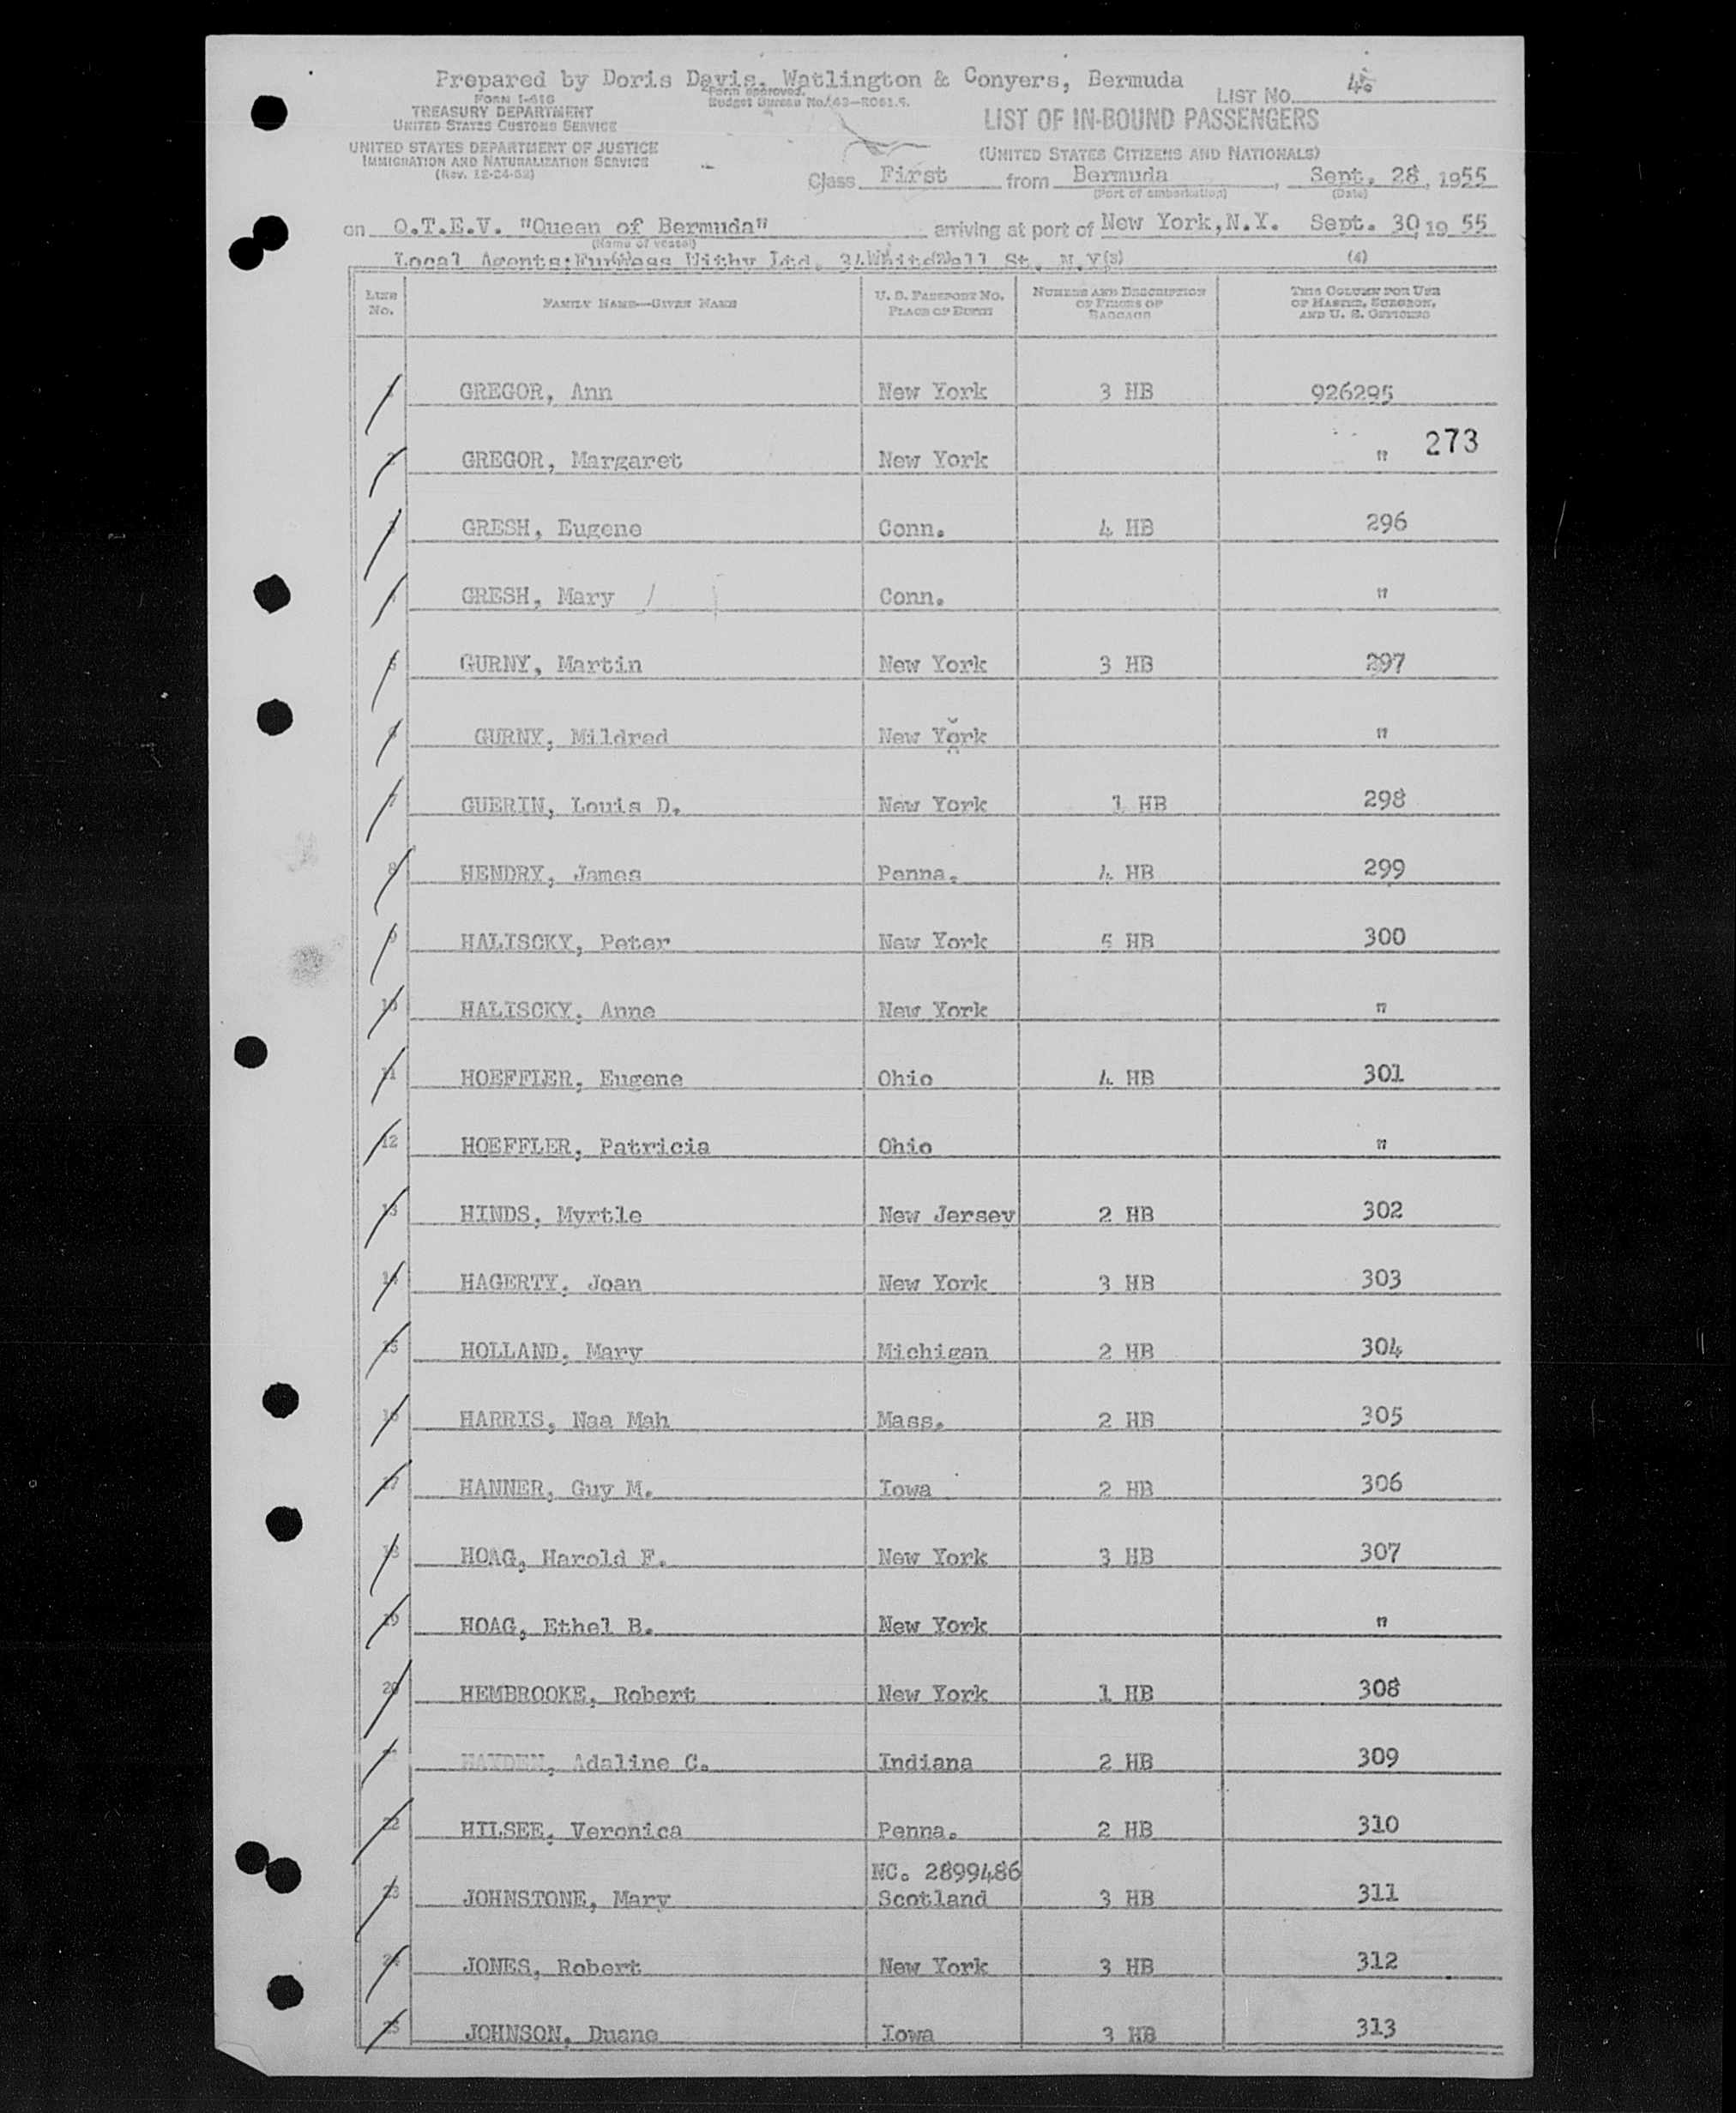 Prepared by Doris Davis, Watlington & Conyers, Bermuda
LIST No.
FORM I-416
TREASURY DEPARTMENT
UNITED STATES CUSTOMS SERVICE
UNITED STATES DEPARTMENT OF JUSTICE
IMMIGRATION AND NATURALIZATION SERVICE
(Rev. 12-24-52)
Form approved.
Budget Bureau No. 43-R061.5.
LIST OF IN-BOUND PASSENGERS
(UNITED STATES CITIZENS AND NATIONALS)
Class First from Bermuda, Sept. 28, 1955
(Port of embarkation) (Date)
on Q.T.E.V. "Queen of Bermuda" arriving at port of New York, N.Y. Sept. 30, 1955
(Name of vessel)
Local Agents: Furness Withy Ltd. 34 Whitehall St. N.Y. (3) (4)
LINE No. FAMILY NAME—GIVEN NAME U. S. PASSPORT NO. PLACE OF BIRTH NUMBER AND DESCRIPTION OF PIECES OF BAGGAGE THIS COLUMN FOR USE OF MASTER, SURGEON, AND U. S. OFFICERS
1 GREGOR, Ann New York 3 HB 926295
273
2 GREGOR, Margaret New York "
3 GRESH, Eugene Conn. 4 HB 296
4 GRESH, Mary Conn. "
5 GURNY, Martin New York 3 HB 297
6 GURNY, Mildred New York "
7 GUERIN, Louis D. New York 1 HB 298
8 HENDRY, James Penna. 4 HB 299
9 HALISCKY, Peter New York 5 HB 300
10 HALISCKY, Anne New York "
11 HOEFFLER, Eugene Ohio 4 HB 301
12 HOEFFLER, Patricia Ohio "
13 HINDS, Myrtle New Jersey 2 HB 302
14 HAGERTY, Joan New York 3 HB 303
15 HOLLAND, Mary Michigan 2 HB 304
16 HARRIS, Naa Mah Mass. 2 HB 305
17 HANNER, Guy M. Iowa 2 HB 306
18 HOAG, Harold F. New York 3 HB 307
19 HOAG, Ethel B. New York "
20 HEMBROOKE, Robert New York 1 HB 308
21 HAYDEN, Adaline C. Indiana 2 HB 309
22 HILSEE, Veronica Penna. 2 HB 310
NC. 2899486
23 JOHNSTONE, Mary Scotland 3 HB 311
24 JONES, Robert New York 3 HB 312
25 JOHNSON, Duane Iowa 3 HB 313